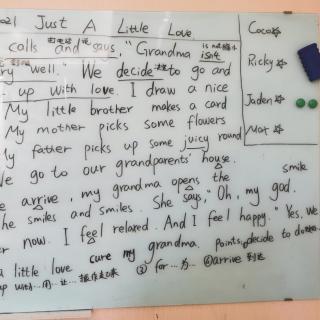 2021 Just A Little Love
calls and says, "Grandma isn't
打电话 说 is not 缩小
very well." We decide to go and
up with love. I draw a nice
My little brother makes a card
My mother picks some flowers
My father picks up some juicy round
We go to our grandparents' house.
We arrive, my grandma opens the
She smiles and smiles. She says, "Oh, my god.
smile
now. I feel relaxed. And I feel happy." Yes, we
a little love cure my grandma. points: decide to do
up with...用...让... ③ for...为... ④ arrive 到达
Coco☆
Ricky☆
Jaden☆
Max☆